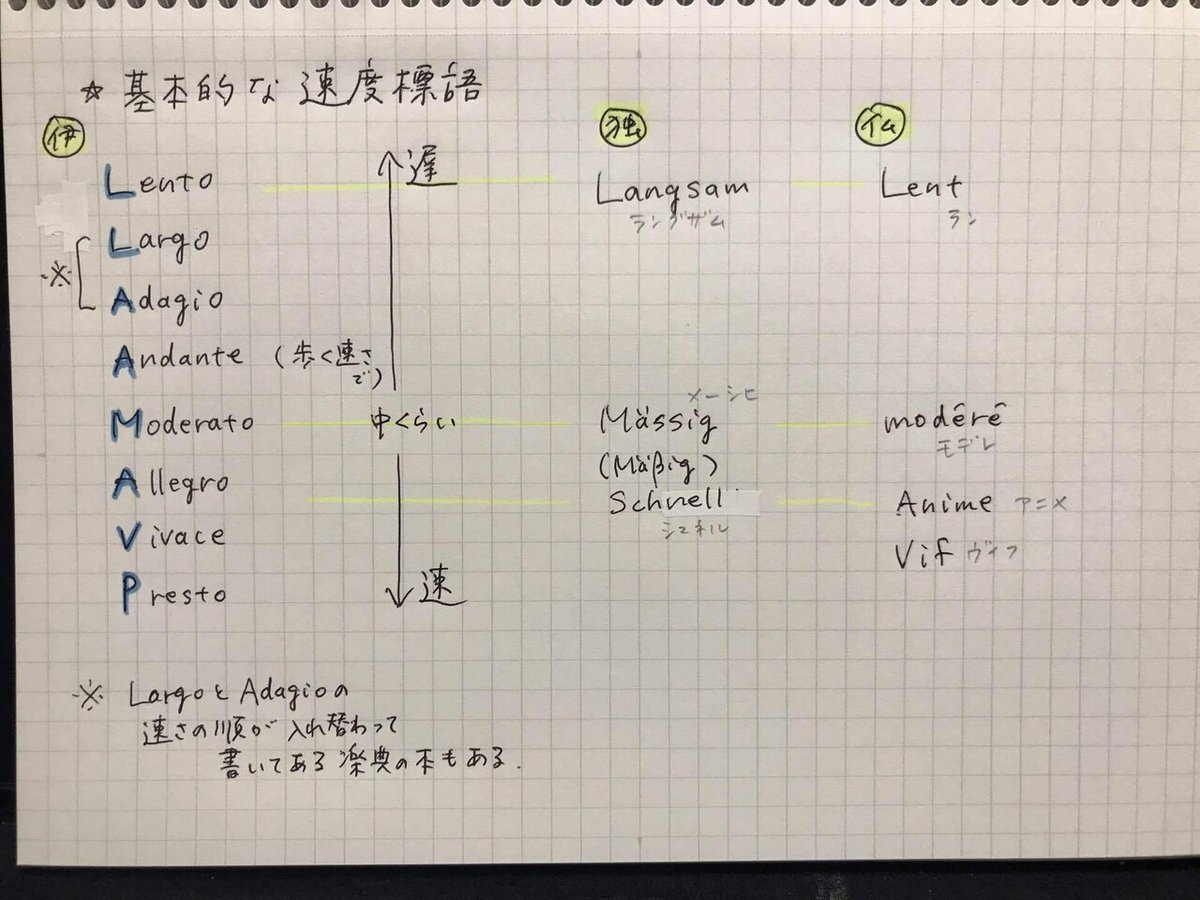 ☆ 基本的な速度標語
伊 独 仏
Lento 遅 Langsam Lent
ラングザム ラン
Largo
※
Adagio
Andante (歩く速さで)
メーシヒ
Moderato 中くらい Mässig modêrê
モデレ
(Mäßig)
Allegro Schnell Anime アニメ
シュネル
Vivace Vif ヴィフ
Presto 速
※ LargoとAdagioの
速さの順が入れ替わって
書いてある楽典の本もある.